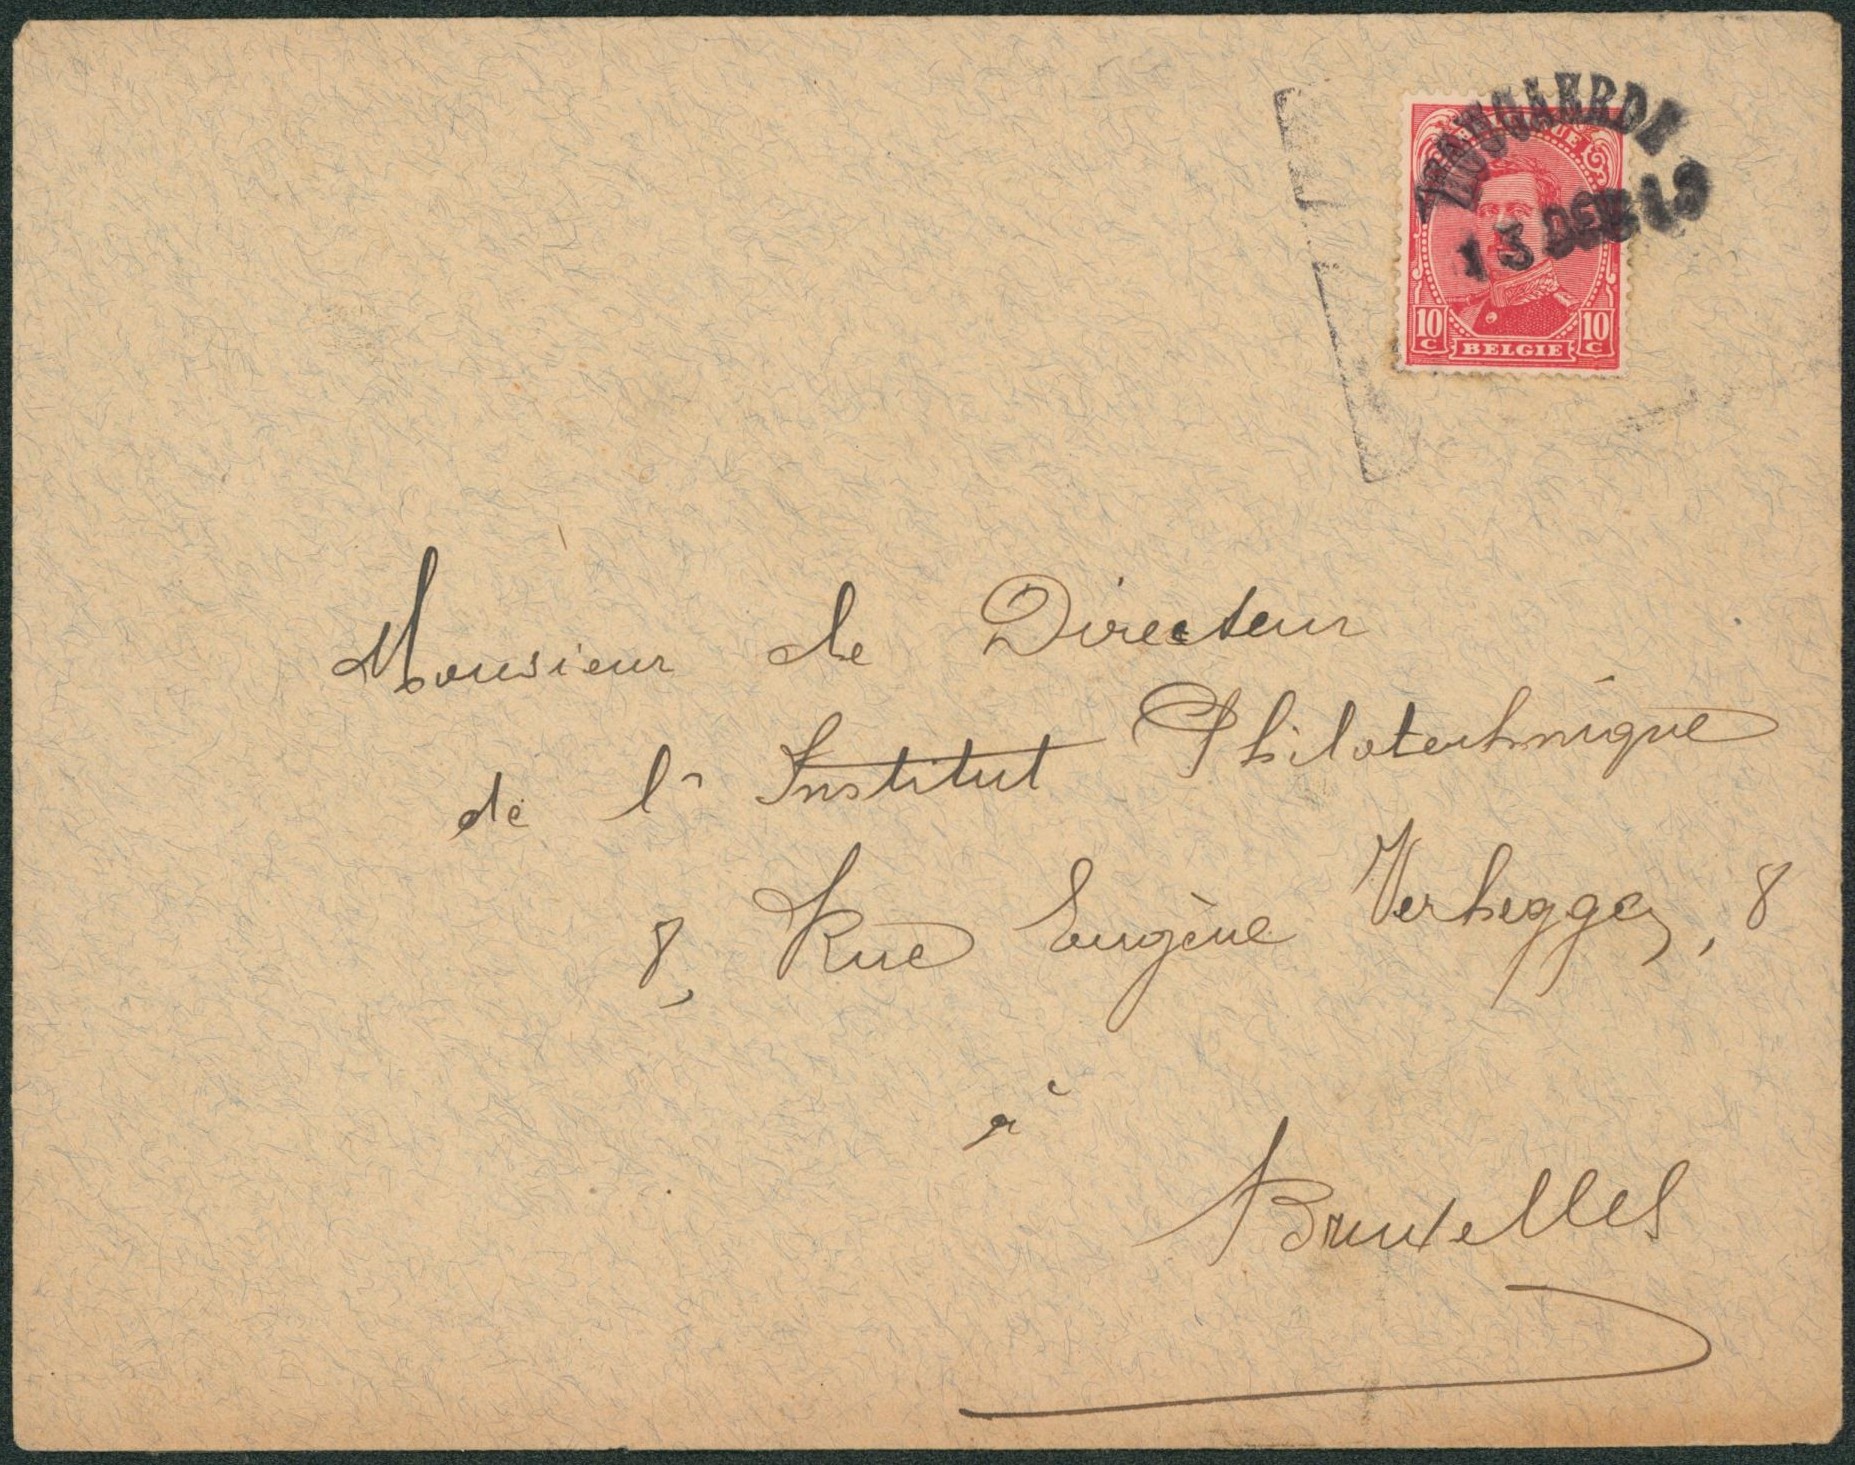 HOUGAERDE
13 DEC 19
10 C BELGIE 10 C
Monsieur le Directeur
de l' Institut Philotechnique
8, Rue Eugène Verheggen, 8
à
Bruxelles